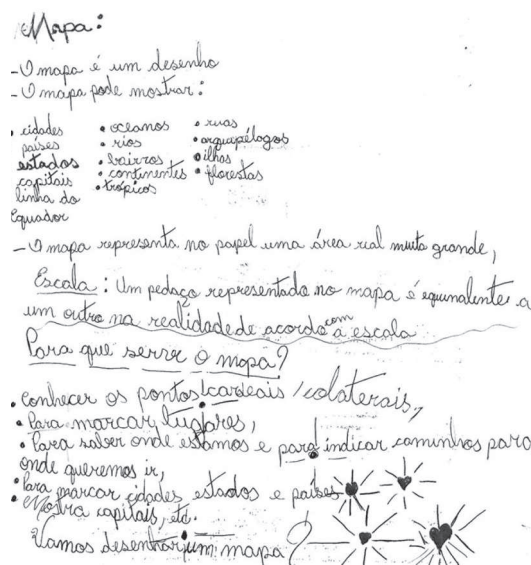 Mapa:
- O mapa é um desenho
- O mapa pode mostrar:
• cidades • oceanos • ruas
países • rios • arquipélagos
estados • bairros • ilhas
capitais • continentes • florestas
linha do • trópicos
Equador
- O mapa representa no papel uma área real muito grande,
Escala: Um pedaço representado no mapa é equivalente a
um outro na realidade de acordo com a escala
Para que serve o mapa?
• Conhecer os pontos cardeais / colaterais,
• Para marcar lugares,
• Para saber onde estamos e para indicar caminhos para
onde queremos ir,
• Para marcar cidades estados e países
• Mostra capitais, etc.
Vamos desenhar um mapa?